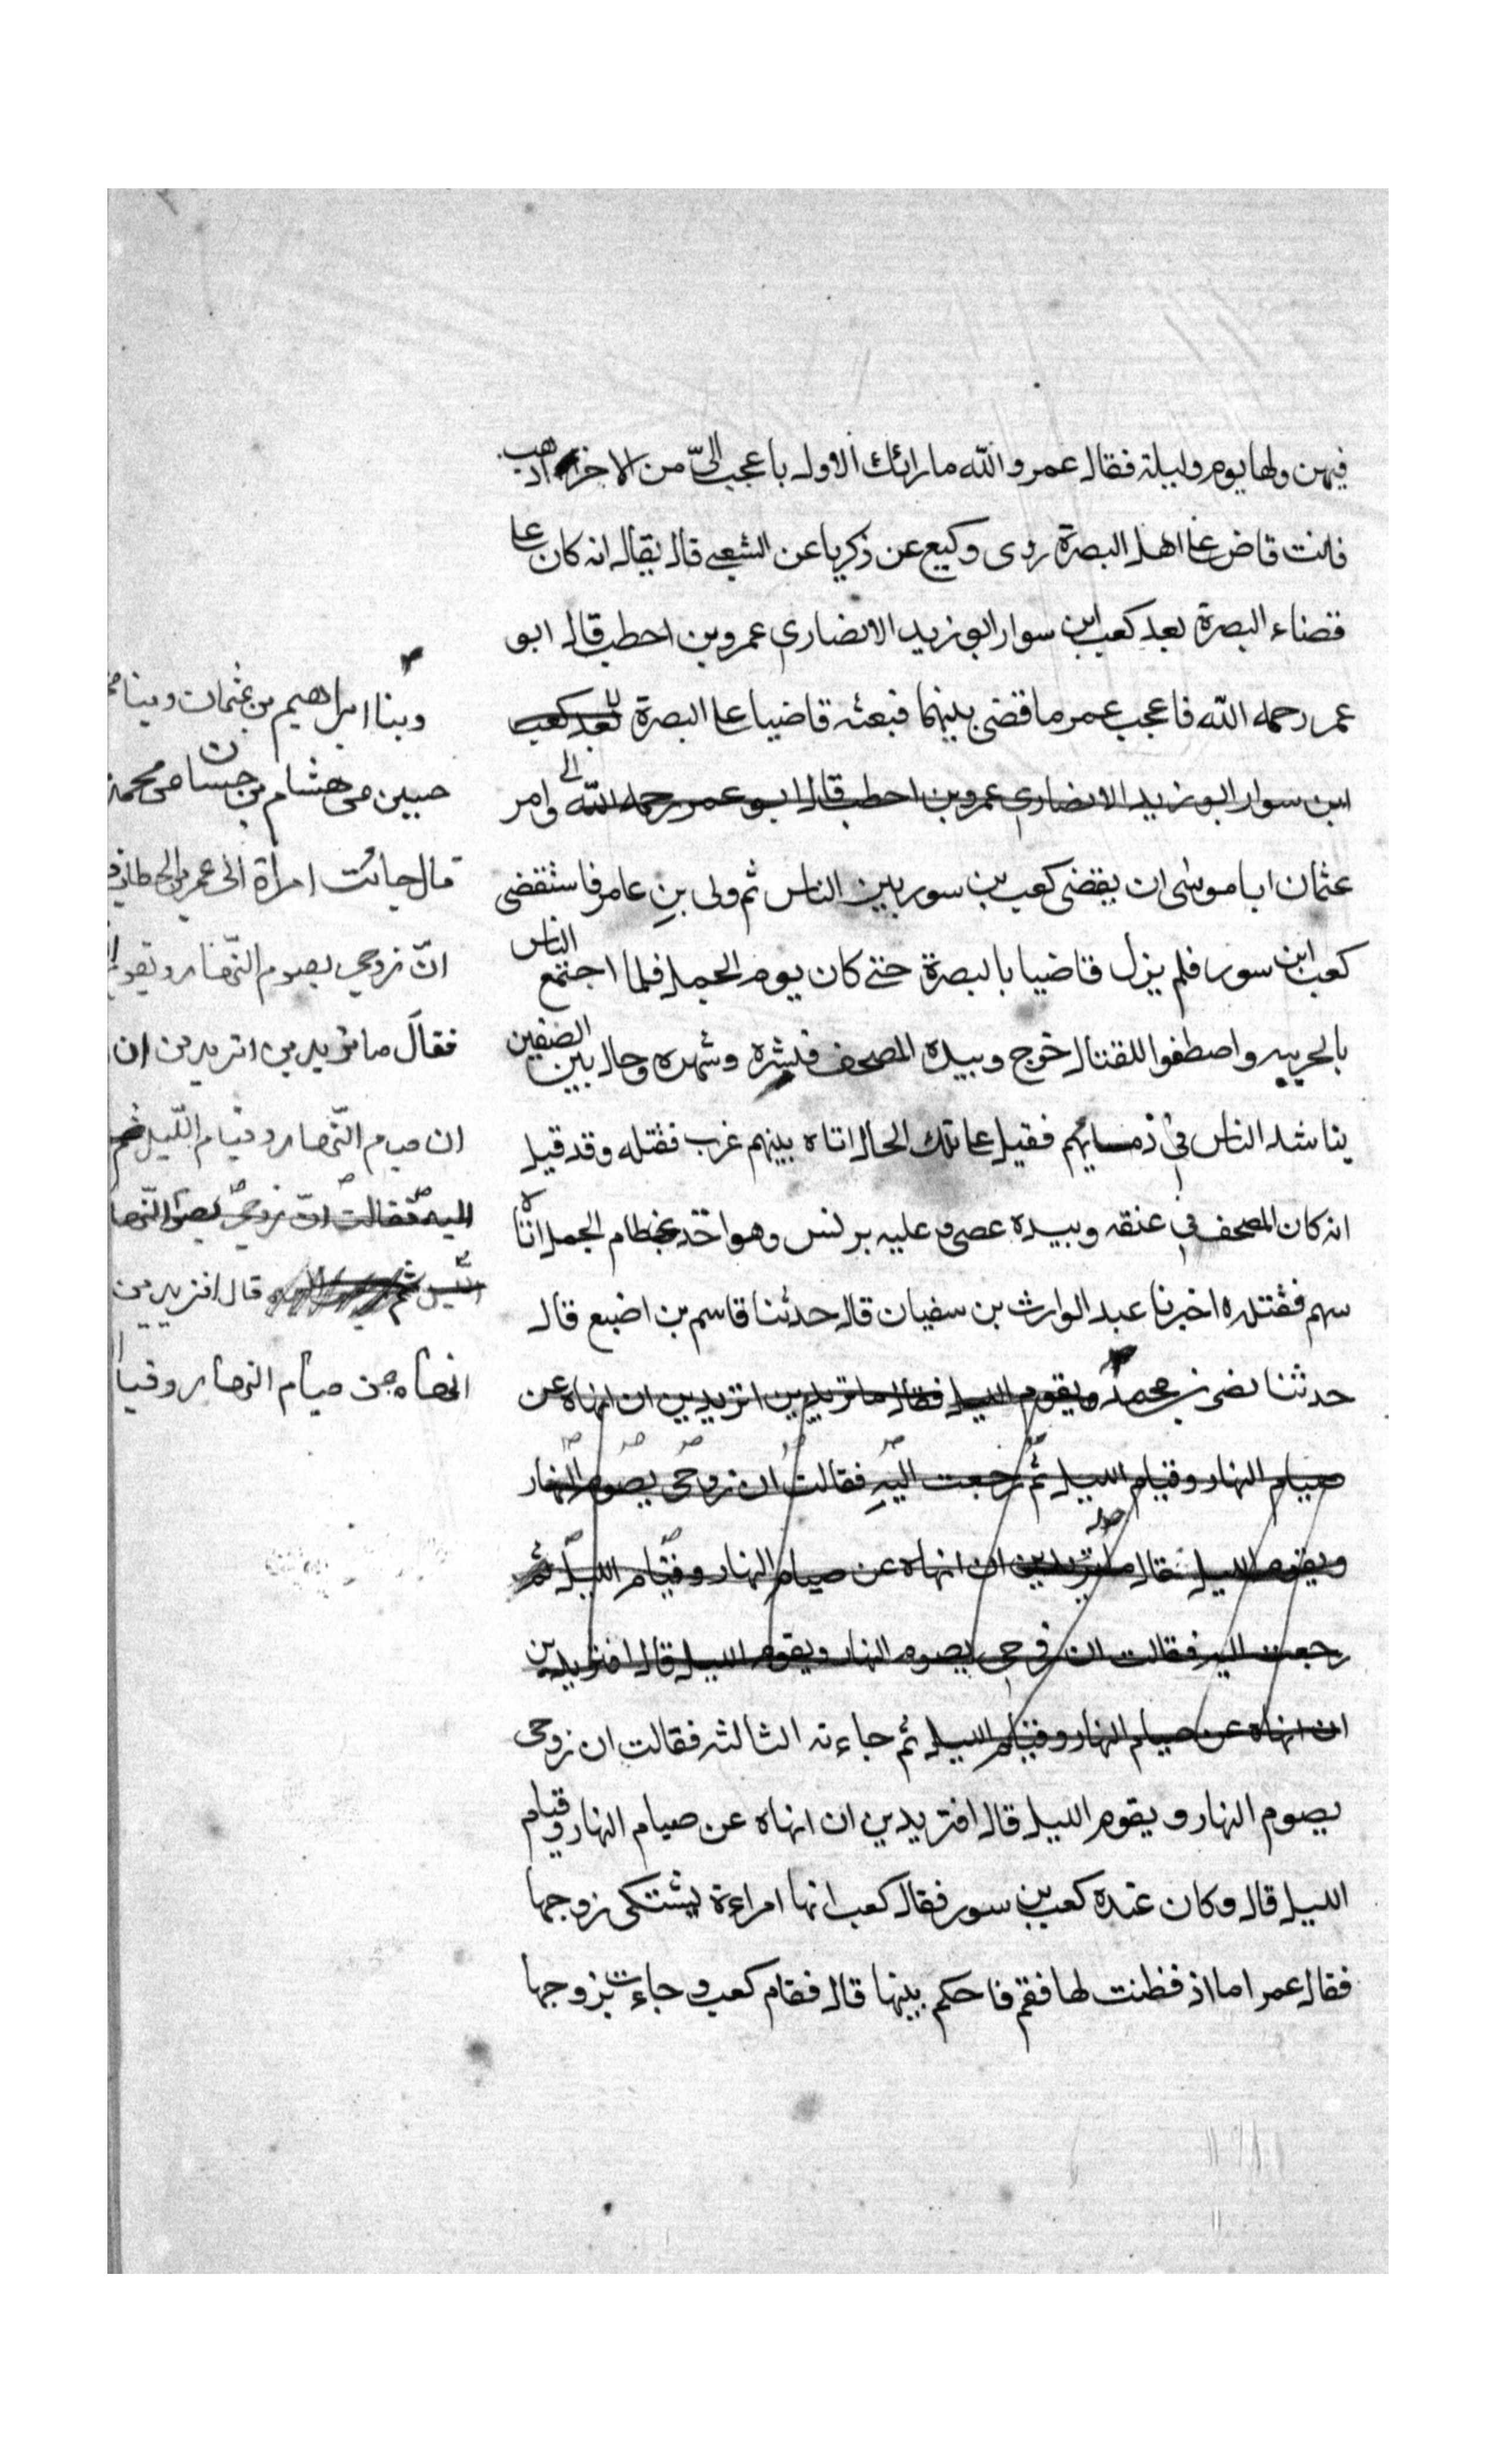 فيهن ولها يوم وليلة فقال عمر والله ما رائك الاول باعجب اليّ من الاخر اذهب
فانت قاض على اهل البصرة روى وكيع عن زكريا عن الشعبي قال يقال انه كان على
قضاء البصرة بعد كعب ابن سوار ابو زيد الانصاري عمرو بن احطب قال ابو
عمر رحمه الله فاعجب عمر ما قضى بينهما فبعثه قاضيا على البصرة بعد كعب
ابن سوار ابو زيد الانصاري عمرو بن احطب قال ابو عمر رحمه الله الى وامر
عثمان ابا موسى ان يقضى كعب بن سور بين الناس ثم ولى بن عامر فاستقضى
كعب ابن سور فلم يزل قاضيا بالبصرة حتى كان يوم الجمل فلما اجتمع الناس
بالحريبه واصطفوا للقتال خرج وبيده المصحف فنشره وشهره وحال بين الصفين
يناشد الناس في دمسائهم فقيل على تلك الحال اتاه بينهم غرب فقتله وقد قيل
انه كان المصحف في عنقه وبيده عصى و عليه برنس وهو اخذ بخطام الجمل اتاه
سهم فقتله اخبرنا عبد الوارث بن سفيان قال حدثنا قاسم بن اضبع قال
حدثنا محمد ويقوم الليل فقال ما تريدين اتريدين ان انهاه عن
صيام النهار وقيام الليل ثم رجعت اليه فقالت ان زوجى يصوم النهار
ويقوم الليل فقال ما تريدين ان انهاه عن صيام النهار وقيام الليل ثم
رجعت اليه فقالت ان زوجى يصوم النهار ويقوم الليل قال افتريدين
ان انهاه عن صيام النهار وقيام الليل ثم جاءته الثالثه فقالت ان زوجى
يصوم النهار ويقوم الليل قال افتريدين ان انهاه عن صيام النهار وقيام
الليل قال وكان عنده كعب بن سور فقال كعب انها امراءة يشتكى زوجها
فقال عمر اما اذ فظنت لها فقم فاحكم بينها قال فقام كعب و جاءت بزوجها
وبنا ابراهيم بن عثمان وبنا
حبين عن هشام بن حسان عن محمد
قال جائت امرأة الى عمر بن الخطاب
انّ زوجي يصوم النّهار ويقوم
فقال ما تريدين اتريدين ان
ان صيام النّهار وقيام اللّيل ثم
اليه فقالت انّ زوجي يصوم النّها
الليل ثم قال افتريدين
انهاه عن صيام النهار وقيا